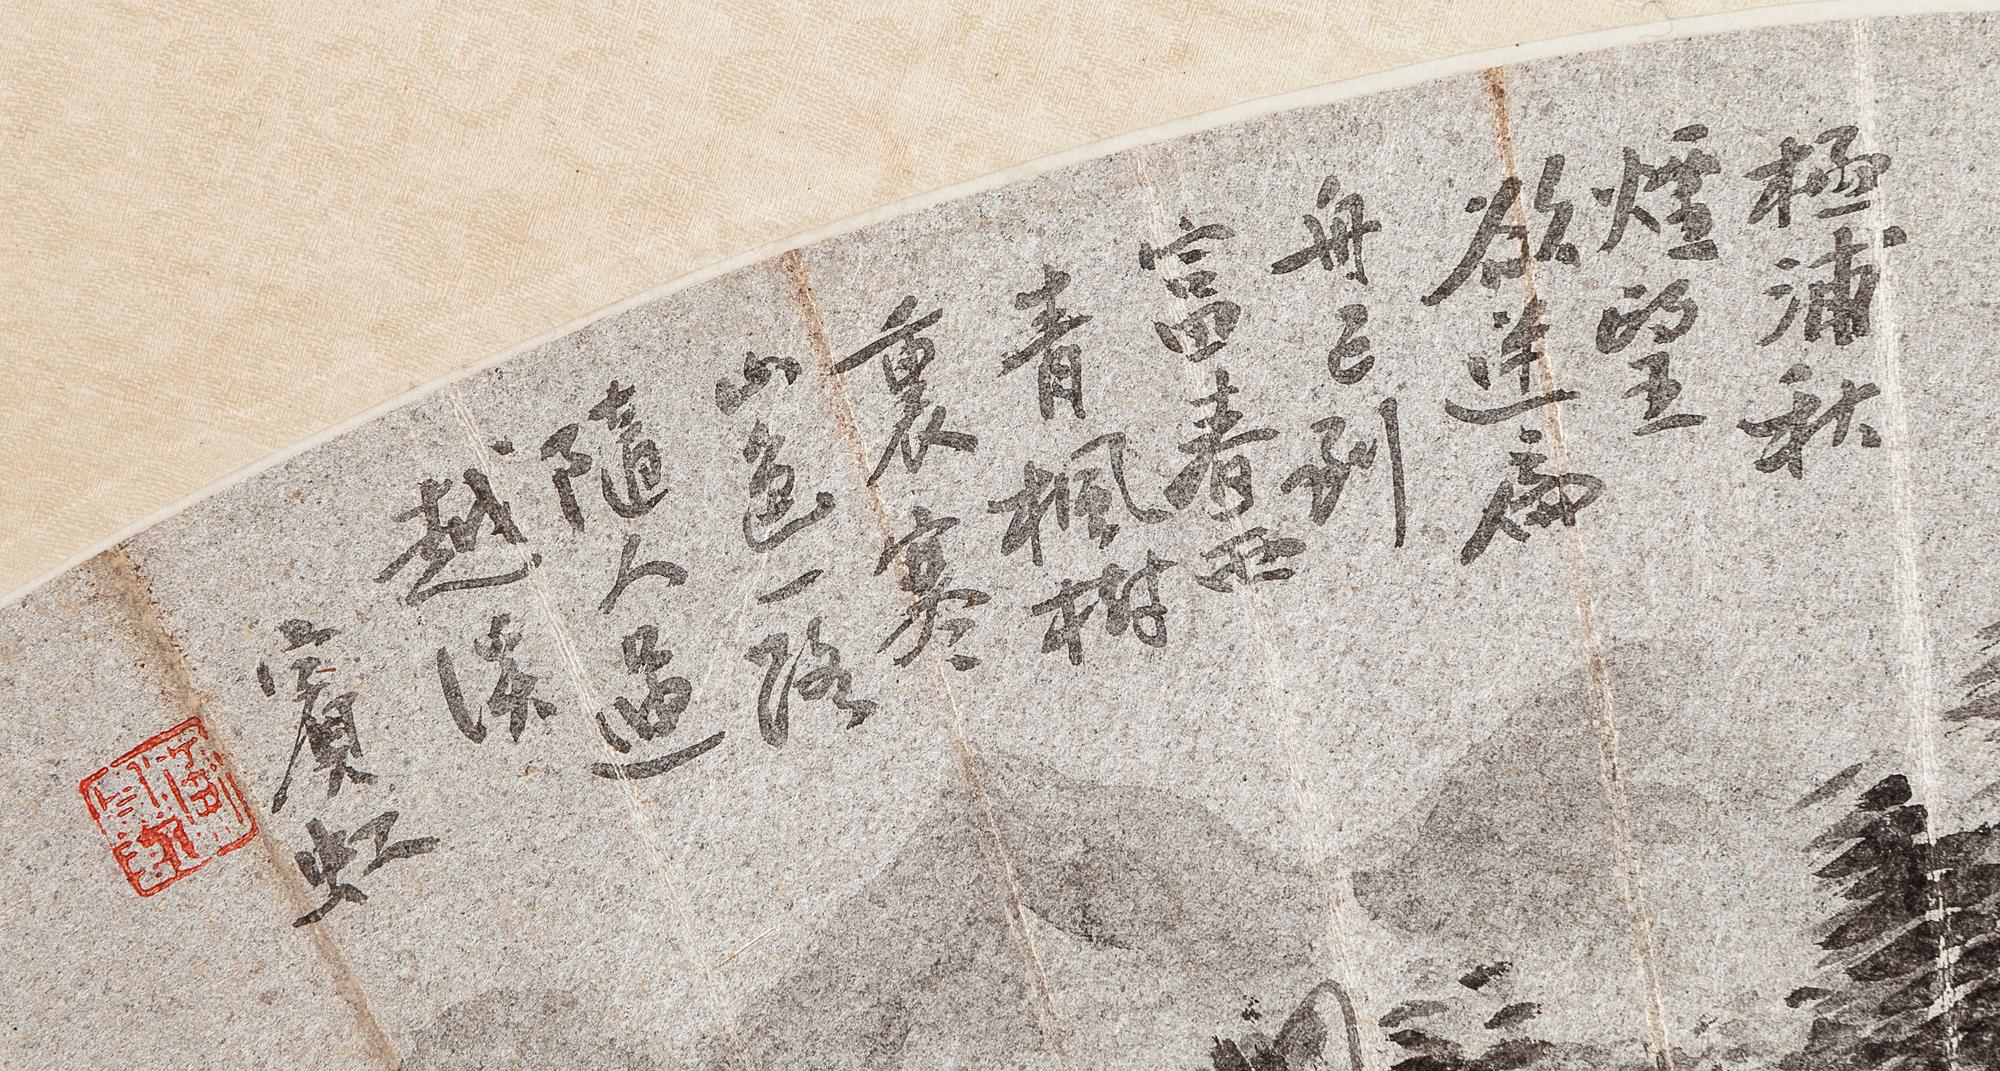 極浦秋
煙望
欲迷扁
舟已到
富春西
青楓樹
裏寒
山色一路
隨人過
越溪
賓虹